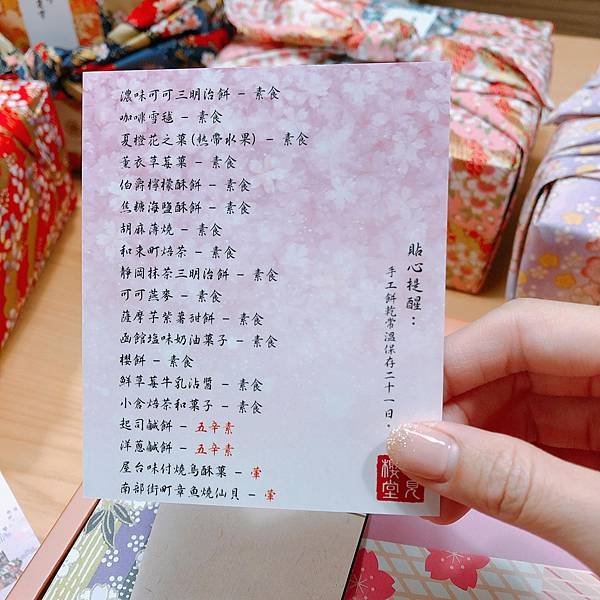 濃味可可三明治餅 – 素食
咖啡雪毬 – 素食
夏橙花之菓(熱帶水果) – 素食
薰衣草莓菓 – 素食
伯爵檸檬酥餅 – 素食
焦糖海鹽酥餅 – 素食
胡麻薄燒 – 素食
和束町焙茶 – 素食
靜岡抹茶三明治餅 – 素食
可可燕麥 – 素食
薩摩芋紫薯甜餅 – 素食
函館塩味奶油菓子 – 素食
櫻餅 – 素食
鮮草莓牛乳沾醬 – 素食
小倉焙茶和菓子 – 素食
起司鹹餅 – 五辛素
洋蔥鹹餅 – 五辛素
屋台味付燒烏酥菓 – 葷
南部街町章魚燒仙貝 – 葷
貼心提醒：
手工餅乾常溫保存二十一日。
見
櫻堂